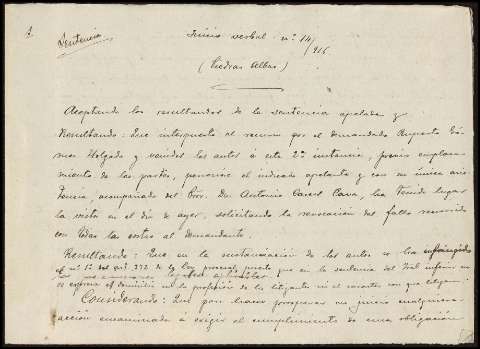 Sentencia
Juicio verbal nº 14/916
(Piedras Albas)
Aceptando los resultandos de la sentencia apelada y
Resultando: Que interpuesto el recurso por el demandado Augusto Gó-
mez Holgado y venidos los autos á esta 2ª instancia, previo emplaza-
miento de las partes, personóse el indicado apelante y con su única asis-
tencia, acompañado del Proc. Dn. Antonio Cava, ha tenido lugar
la vista en el día de ayer, solicitando la revocación del fallo recurrido
con todas las costas al demandante.
Resultando: Que en la sustanciación de los autos se ha infringido
el nº 1º del artº 372 de la ley procesal, puesto que en la sentencia del inferior no
se expresa el domicilio ni la profesión de los litigantes ni el carácter con que litigan.
Considerando: Que para prosperar en juicio cualquiera
acción encaminada á exigir el cumplimiento de una obligación